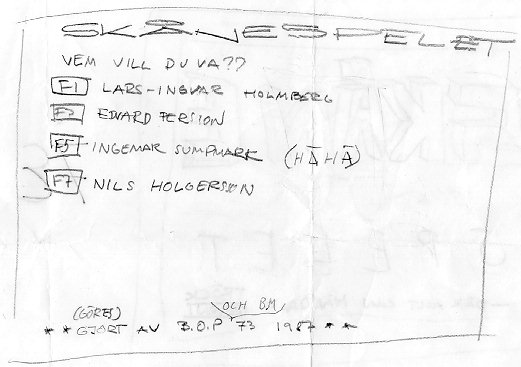 SKÅNESPELET
VEM VILL DU VA??
F1 LARS-INGVAR HOLMBERG
F3 EDVARD PERSION
F5 INGEMAR SUMPMARK (HÄ HÄ)
F7 NILS HOLGERSSON
(GÖRES) OCH BM
* * GJORT AV B.O.P 73 1987 * *